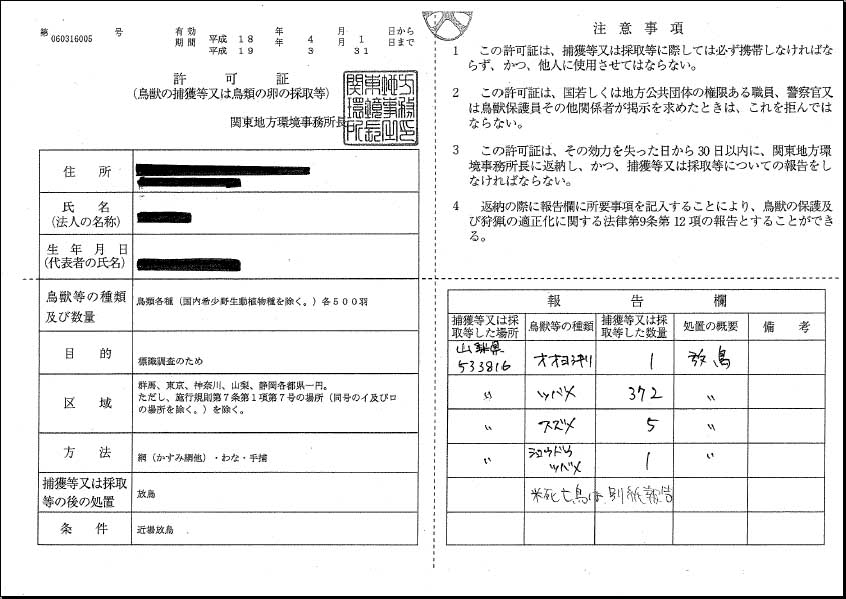 第 060316005 号
有効期間 平成 18 年 4 月 1 日から
平成 19 年 3 月 31 日まで
許可証
(鳥獣の捕獲等又は鳥類の卵の採取等)
関東地方環境事務所長
住所
氏名
(法人の名称)
生年月日
(代表者の氏名)
鳥獣等の種類
及び数量
鳥類各種(国内希少野生動植物種を除く。)各500羽
目的
標識調査のため
区域
群馬、東京、神奈川、山梨、静岡各都県一円。
ただし、施行規則第7条第1項第7号の場所(同号のイ及びロ
の場所を除く。)を除く。
方法
網(かすみ網他)・わな・手捕
捕獲等又は採取
等の後の処置
放鳥
条件
近場放鳥
注意事項
1 この許可証は、捕獲等又は採取等に際しては必ず携帯しなければな
らず、かつ、他人に使用させてはならない。
2 この許可証は、国若しくは地方公共団体の権限ある職員、警察官又
は鳥獣保護員その他関係者が掲示を求めたときは、これを拒んではな
らない。
3 この許可証は、その効力を失った日から30日以内に、関東地方環
境事務所長に返納し、かつ、捕獲等又は採取等についての報告をし
なければならない。
4 返納の際に報告欄に所要事項を記入することにより、鳥獣の保護及
び狩猟の適正化に関する法律第9条第12項の報告とすることができ
る。
報告欄
捕獲等又は採
取等した場所
鳥獣等の種類
捕獲等又は採
取等した数量
処置の概要
備考
山梨県
533816
オオヨシキリ
1
放鳥
〃
ツバメ
372
〃
〃
スズメ
5
〃
〃
ショウドウ
ツバメ
1
〃
※死亡鳥は別紙報告